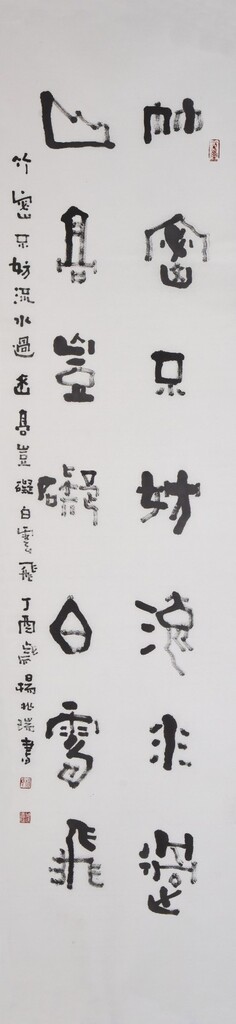 竹密不妨流水過
山高豈礙白雲飛
竹密不妨流水過山高豈礙白雲飛丁酉歲楊書